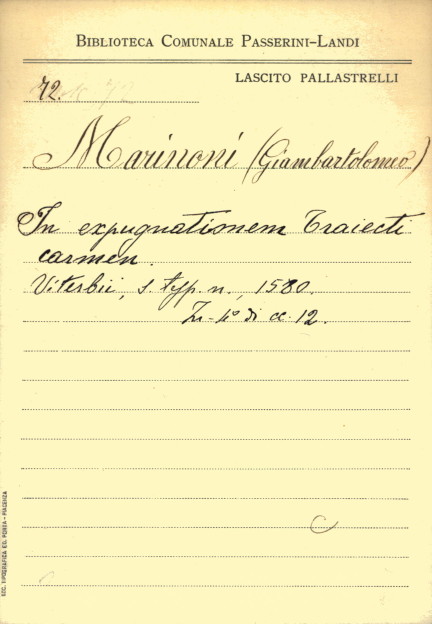 BIBLIOTECA COMUNALE PASSERINI-LANDI
LASCITO PALLASTRELLI
72.
Marinoni (Giambartolomeo)
In expugnationem Traiecti
carmen.
Viterbii, s. typ. n., 1580.
In-4° di cc. 12.
C